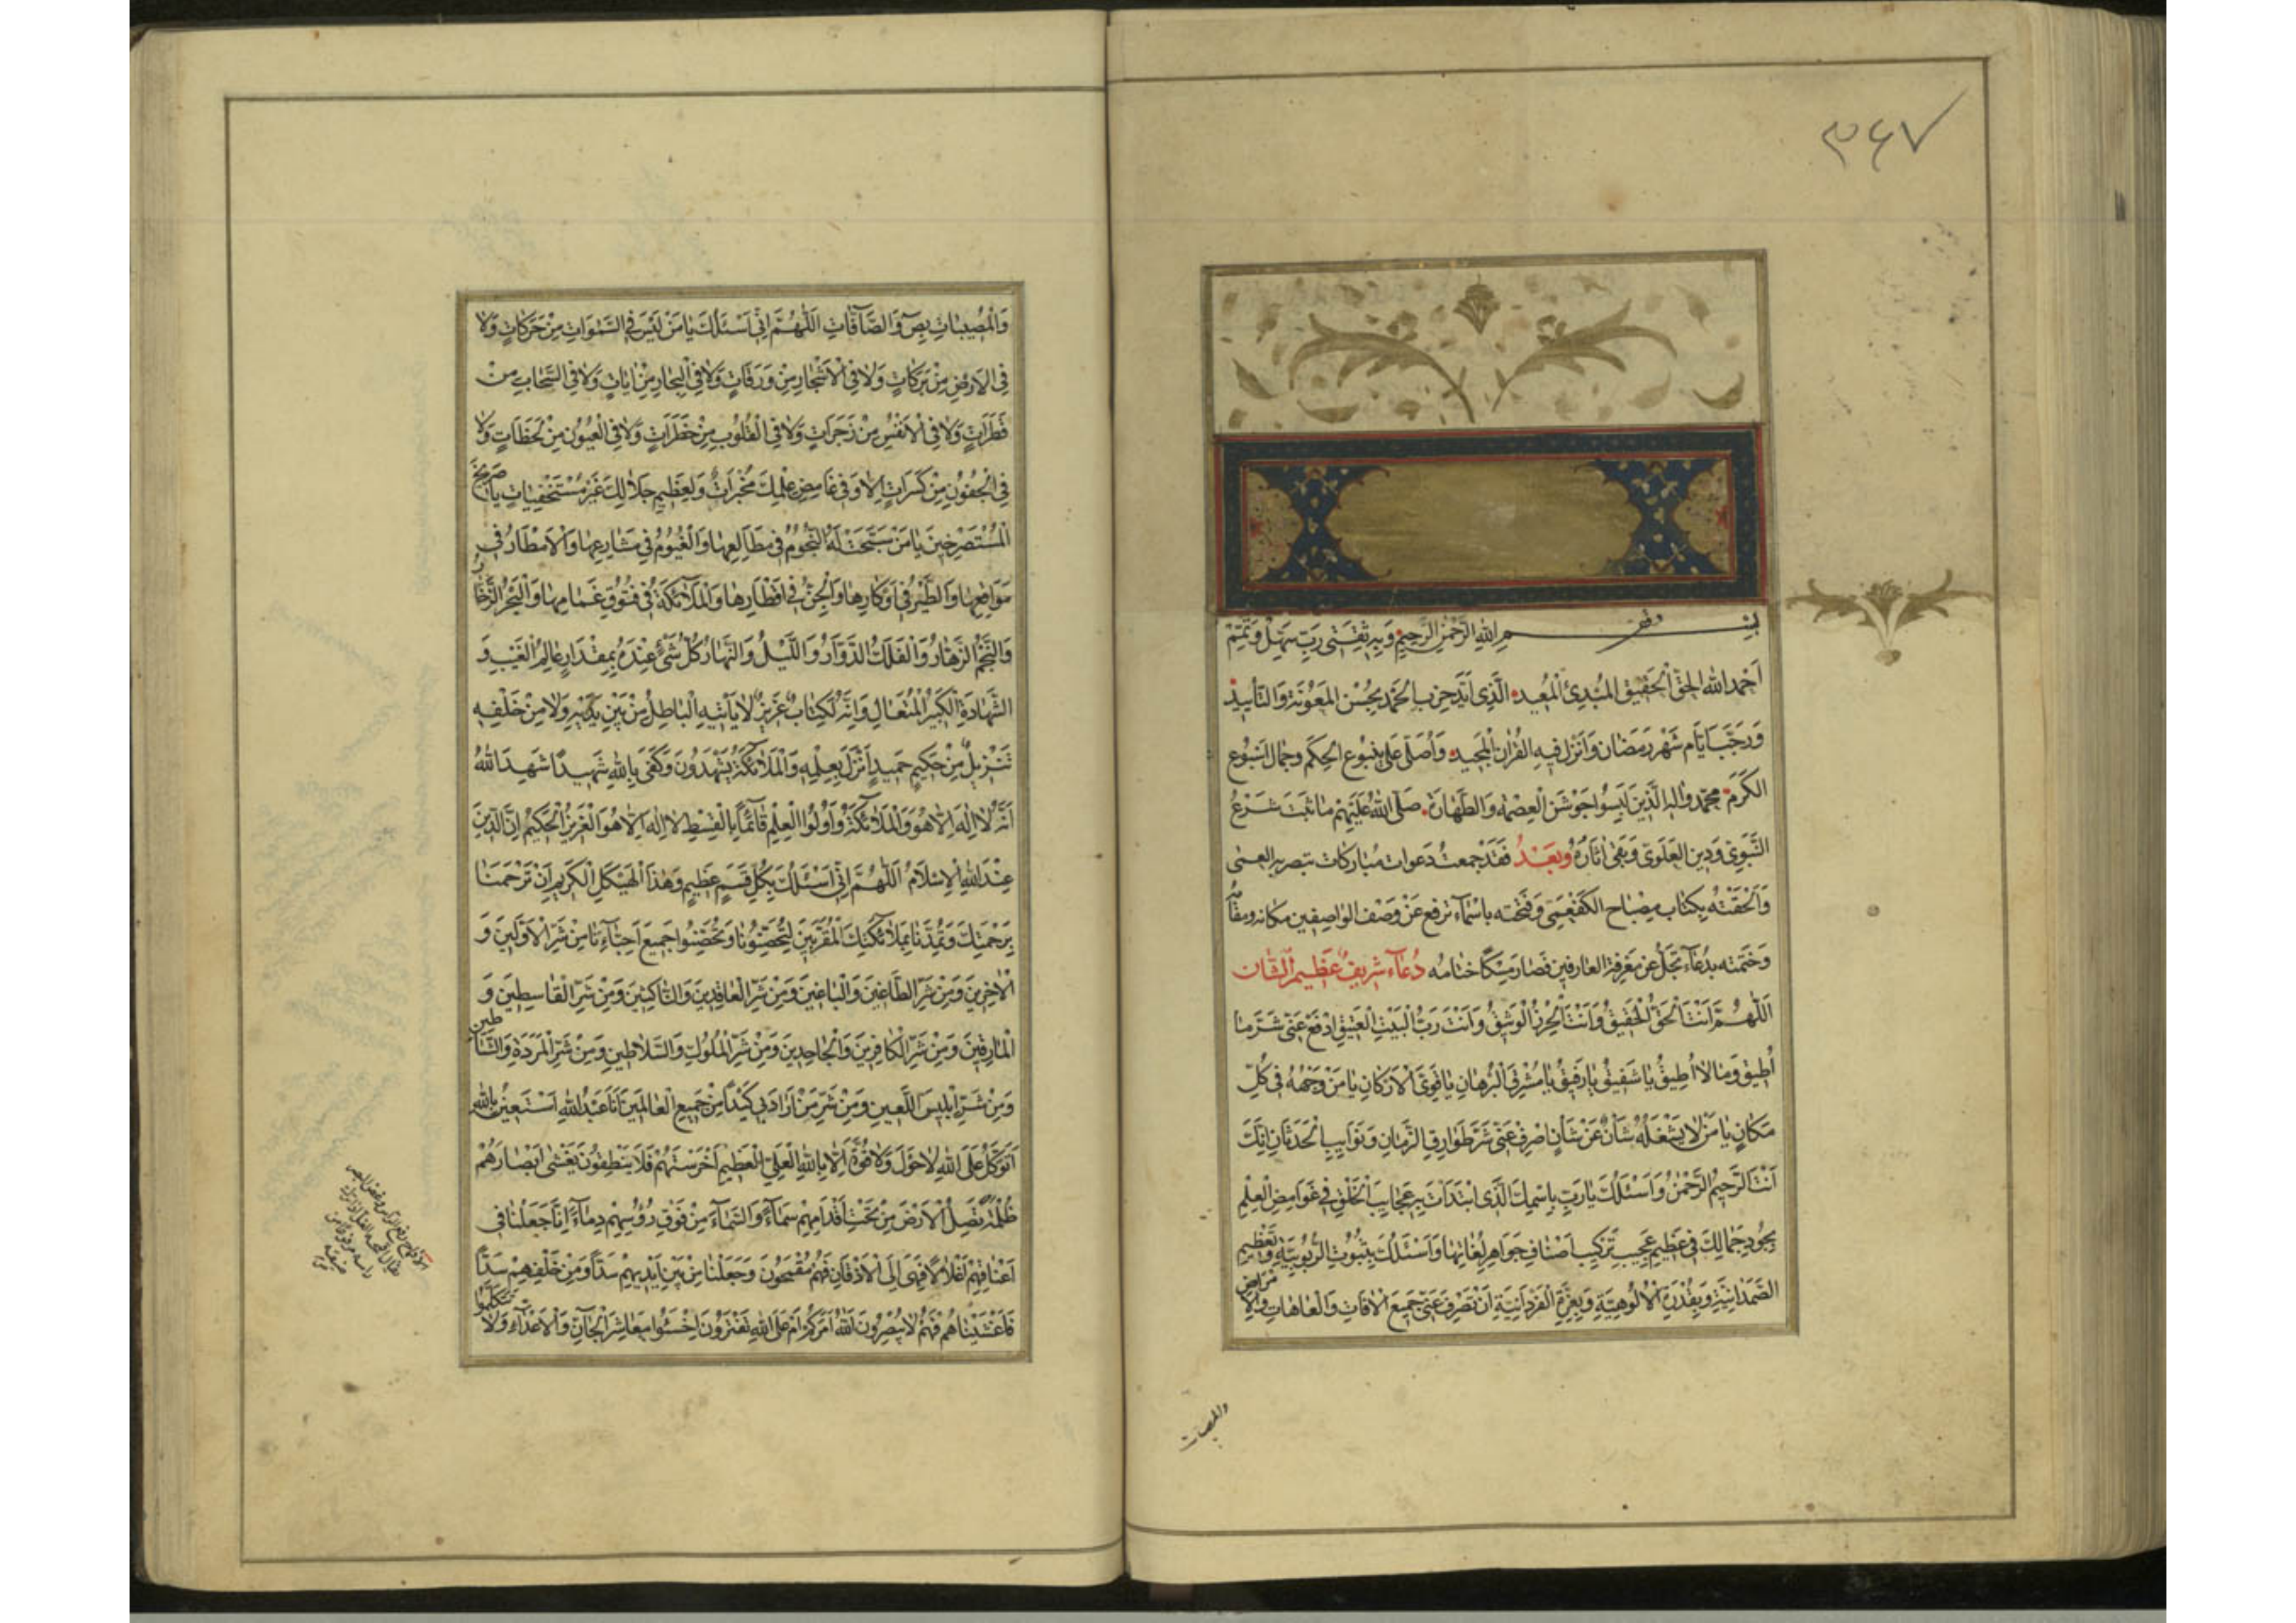 ۳۶۷
بسم الله الرحمن الرحيم وبه ثقتي رب سهل وتمم
اَحمد الله الحق الحقيق المبدئ المعيد الذي اَيد حزب الحمد بحسن المعونة والتأييد
ورجب ايام شهر رمضان وانزل فيه القران المجيد واصلي على ينبوع الحكم وجمال النبوع
الكرم محمد واله الذين لبسوا جوشن العصمة والطهارة صلى الله عليهم ما ثبت شرع
النبوي ودين العلوي وبقى اثاره وبعد فقد جمعت دعوات مباركات
والحقته بكتاب مصباح الكفعمي وفتحته باسماء ترفع عن وصف الواصفين مكانه
وختمته بدعاء تجل عن معرفة العارفين فصار مسكا ختامه دعاء شريف عظيم الشان
اَللّٰهُمَّ اَنْتَ الْحَقُّ الْحَقيقُ وَاَنْتَ الْحِرْزُ الْوَثيقُ وَاَنْتَ رَبُّ الْبَيْتِ الْعَتيقِ اِدْفَعْ عَنّى شَرَّ مٰا
اُطيقُ وَمٰا لاٰ اُطيقُ يٰا شَفيقُ يٰا رَفيقُ يٰا مُشْرِقَ الْبُرْهٰانِ يٰا قَوِىَّ الْاَرْكٰانِ يٰا مَنْ وَجْهُهُ فى كُلِّ
مَكٰانٍ يٰا مَنْ لاٰ يَشْغَلُهُ شَأْنٌ عَنْ شَأْنٍ اصْرِفْ عَنّى شَرَّ طَوٰارِقِ الزَّمٰانِ وَنَوٰايِبِ الْحَدَثٰانِ اِنَّكَ
اَنْتَ الرَّحيمُ الرَّحْمٰنُ وَاَسْئَلُكَ يٰا رَبِّ بِاسْمِكَ الَّذى ابْتَدَاْتَ بِهِ عَجٰايِبَ الْخَلْقِ فى غَوٰامِضِ الْعِلْمِ
بِجُودِ جَمٰالِكَ فى عَظيمِ عَجيبِ تَرْكيبِ اَصْنٰافِ جَوٰاهِرِ لُغٰاتِهٰا وَاَسْئَلُكَ بِثُبُوتِ الرُّبُوبِيَّةِ وَتَعْظيمِ
الصَّمَدٰانِيَّةِ وَبِقُدْرَةِ الْاُلُوهِيَّةِ وَبِعِزَّةِ الْفَرْدٰانِيَّةِ اَنْ تَصْرِفَ عَنّى جَميعَ الْاٰفٰاتِ وَالْعٰاهٰاتِ وَالْاَمْرٰاضِ
وَالْمُصيبٰاتِ بِصٓ وَالصّٰٓافّٰاتِ اَللّٰهُمَّ اِنّى اَسْئَلُكَ يٰا مَنْ لَيْسَ فِى السَّمٰوٰاتِ مِنْ حَرَكٰاتٍ وَلاٰ
فِى الْاَرْضِ مِنْ بَرَكٰاتٍ وَلاٰ فِى الْاَشْجٰارِ مِنْ وَرَقٰاتٍ وَلاٰ فِى الْبِحٰارِ مِنْ اٰيٰاتٍ وَلاٰ فِى السَّحٰابِ مِنْ
قَطَرٰاتٍ وَلاٰ فِى الْاَنْفُسِ مِنْ زَجَرٰاتٍ وَلاٰ فِى الْقُلُوبِ مِنْ خَطَرٰاتٍ وَلاٰ فِى الْعُيُونِ مِنْ لَحَظٰاتٍ وَلاٰ
فِى الْجُفُونِ مِنْ كَسَرٰاتٍ اِلاّٰ وَفى غٰامِضِ عِلْمِكَ مُخْبَرٰاتٌ وَلِعَظيمِ جَلاٰلِكَ غَيْرُ مُسْتَخْفِيٰاتٍ يٰا صَريخَ
الْمُسْتَصْرِخينَ يٰا مَنْ سَبَّحَتْ لَهُ النُّجُومُ فى مَطٰالِعِهٰا وَالْغُيُومُ فى مَشٰارِعِهٰا وَالْاَمْطٰارُ فى
مَوٰاضِعِهٰا وَالطَّيْرُ فى اَوْكٰارِهٰا وَالْجِنُّ فى اَقْطٰارِهٰا وَالْمَلاٰئِكَةُ فى فُتُوقِ غَمٰامِهٰا وَالْبَحْرُ الزَّخّٰارُ
وَالنَّجْمُ الزَّهّٰارُ وَالْفَلَكُ الدَّوّٰارُ وَاللَّيْلُ وَالنَّهٰارُ كُلُّ شَىْءٍ عِنْدَهُ بِمِقْدٰارٍ عٰالِمُ الْغَيْبِ وَ
الشَّهٰادَةِ الْكَبيرُ الْمُتَعٰالِ وَاِنَّهُ لَكِتٰابٌ عَزيزٌ لاٰ يَاْتيهِ الْبٰاطِلُ مِنْ بَيْنِ يَدَيْهِ وَلاٰ مِنْ خَلْفِهِ
تَنْزيلٌ مِنْ حَكيمٍ حَميدٍ اَنْزَلَ بِعِلْمِهِ وَالْمَلاٰئِكَةُ يَشْهَدُونَ وَكَفىٰ بِاللّٰهِ شَهيدًا شَهِدَ اللّٰهُ
اَنَّهُ لاٰ اِلٰهَ اِلاّٰ هُوَ وَالْمَلاٰئِكَةُ وَاُولُوا الْعِلْمِ قٰائِمًا بِالْقِسْطِ لاٰ اِلٰهَ اِلاّٰ هُوَ الْعَزيزُ الْحَكيمُ اِنَّ الدّينَ
عِنْدَ اللّٰهِ الْاِسْلاٰمُ اَللّٰهُمَّ اِنّى اَسْئَلُكَ بِكُلِّ قَسَمٍ عَظيمٍ وَهٰذَا الْهَيْكَلِ الْكَريمِ اَنْ تَرْحَمَنٰا
بِرَحْمَتِكَ وَتُمِدَّنٰا بِمَلاٰئِكَتِكَ الْمُقَرَّبينَ لِتُحَصِّنُونٰا وَتُحَصِّنُوا جَميعَ اَحِبّٰاءِنٰا مِنْ شَرِّ الْاَوَّلينَ وَ
الْاٰخِرينَ وَمِنْ شَرِّ الطّٰاغينَ وَالْبٰاغينَ وَمِنْ شَرِّ الْعٰاقِدينَ وَالنّٰاكِثينَ وَمِنْ شَرِّ الْقٰاسِطينَ وَ
الْمٰارِقينَ وَمِنْ شَرِّ الْكٰافِرينَ وَالْجٰاحِدينَ وَمِنْ شَرِّ الْمُلُوكِ وَالسَّلاٰطينِ وَمِنْ شَرِّ الْمَرَدَةِ وَالشَّيٰاطينِ
وَمِنْ شَرِّ اِبْليسَ اللَّعينِ وَمِنْ شَرِّ مَنْ اَرٰادَ بى كَيْدًا مِنْ جَميعِ الْعٰالَمينَ اَنَا عَبْدُ اللّٰهِ اَسْتَعينُ بِاللّٰهِ
اَتَوَكَّلُ عَلَى اللّٰهِ لاٰ حَوْلَ وَلاٰ قُوَّةَ اِلاّٰ بِاللّٰهِ الْعَلِىِّ الْعَظيمِ اَخْرَسْتَهُمْ فَلاٰ يَنْطِقُونَ يَغْشىٰ اَبْصٰارَهُمْ
ظُلْمَةٌ تَصِلُ الْاَرْضَ مِنْ تَحْتِ اَقْدٰامِهِمْ سَمٰاءً وَالسَّمٰاءَ مِنْ فَوْقِ رُؤُسِهِمْ اِنّٰا جَعَلْنٰا فى
اَعْنٰاقِهِمْ اَغْلاٰلاً فَهِىَ اِلَى الْاَذْقٰانِ فَهُمْ مُقْمَحُونَ وَجَعَلْنٰا مِنْ بَيْنِ اَيْديهِمْ سَدًّا وَمِنْ خَلْفِهِمْ سَدًّا
فَاَغْشَيْنٰاهُمْ فَهُمْ لاٰ يُبْصِرُونَ اللّٰهُ اَمَرَكُمْ اَمْ عَلَى اللّٰهِ تَفْتَرُونَ اِخْسَئُوا مَعٰاشِرَ الْجٰانِّ وَالْاَعْدٰاءِ وَلاٰ تَتَكَلَّمُوا